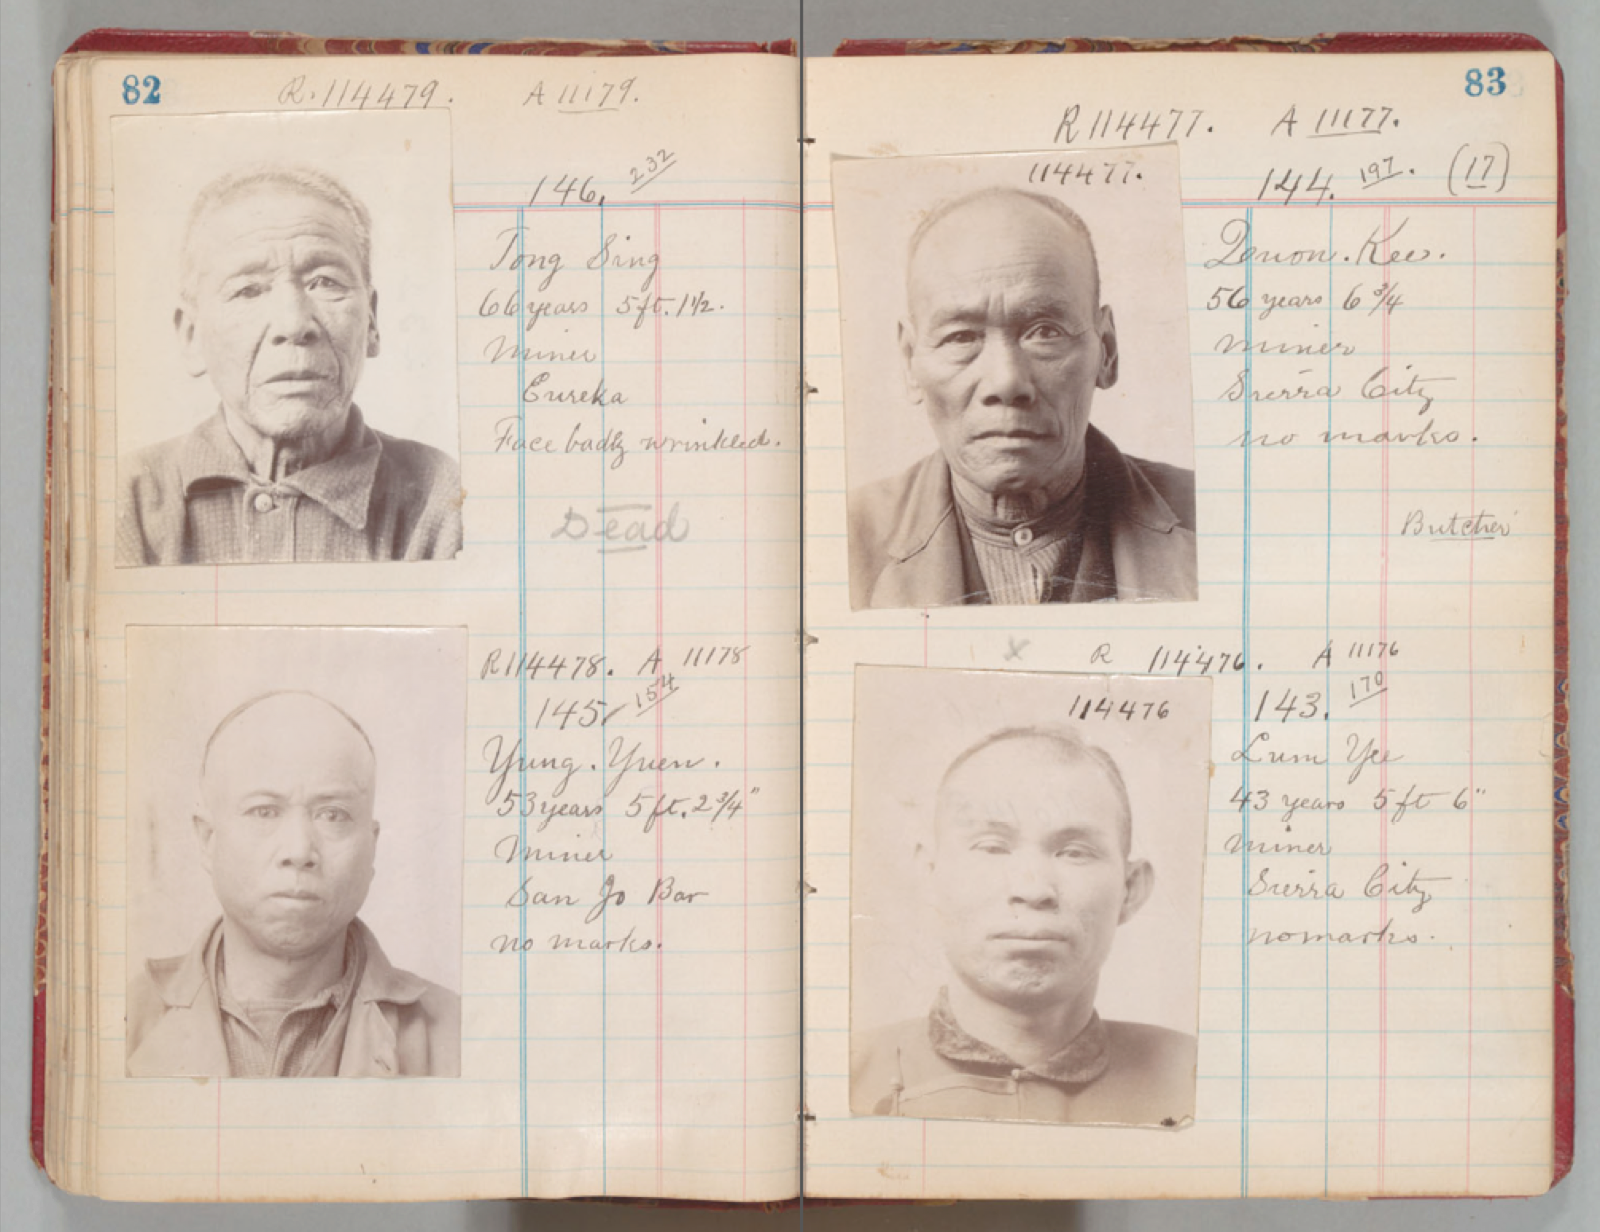 82
R. 114479. A 11179.
146. 232
Tong Sing
66 years 5 ft. 1 1/2.
Miner
Eureka
Face badly wrinkled.
Dead
R 114478. A 11178
145. 154
Yung. Yuen.
53 years 5 ft. 2 3/4"
Miner
San Jo Bar
no marks.
83
R 114477. A 11177.
114477.
144. 197. (17)
Quon. Kee.
56 years 6 3/4
miner
Sierra City
no marks.
Butcher
x R 114476. A 11176
114476
143. 170
Lum Yee
43 years 5 ft 6"
miner
Sierra City
no marks.